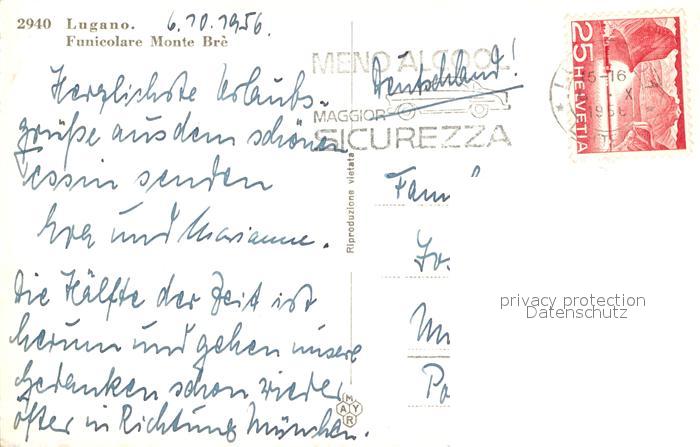 2940 Lugano. 6.10.1956.
Funicolare Monte Brè
MENO ALCOOL
MAGGIOR
SICUREZZA
25
HELVETIA
15-16
X
1956
Deutschland!
Herzlichste Urlaubs-
grüße aus dem schönen
Tessin senden
und Marianne.
Die Hälfte der Zeit ist
herum und gehen unsere
Gedanken schon wieder
öfter in Richtung München.
Riproduzione vietata
MAYR
Fam
Jo
Mü
Po
privacy protection
Datenschutz